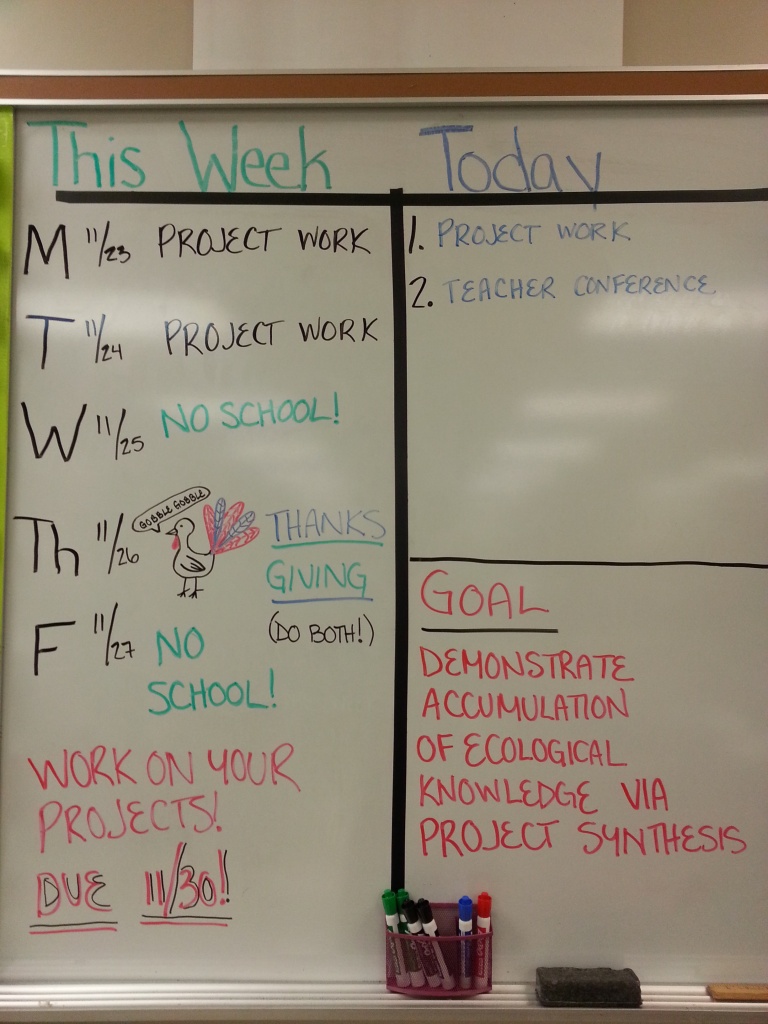 This Week
M 11/23 PROJECT WORK
T 11/24 PROJECT WORK
W 11/25 NO SCHOOL!
Th 11/26 GOBBLE GOBBLE THANKS
GIVING
(DO BOTH!)
F 11/27 NO
SCHOOL!
WORK ON YOUR
PROJECTS!
DUE 11/30!!
Today
1. PROJECT WORK
2. TEACHER CONFERENCE
GOAL
DEMONSTRATE
ACCUMULATION
OF ECOLOGICAL
KNOWLEDGE VIA
PROJECT SYNTHESIS